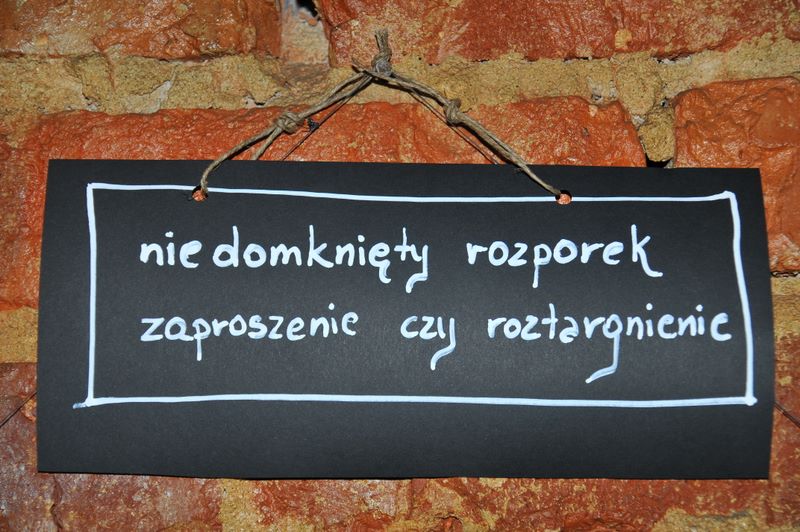 niedomknięty rozporek
zaproszenie czy roztargnienie